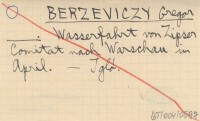 BERZEVICZY Gregor
—: Wasserfahrt von Zipser
Comitat nach Warschau im
April. — Igló.